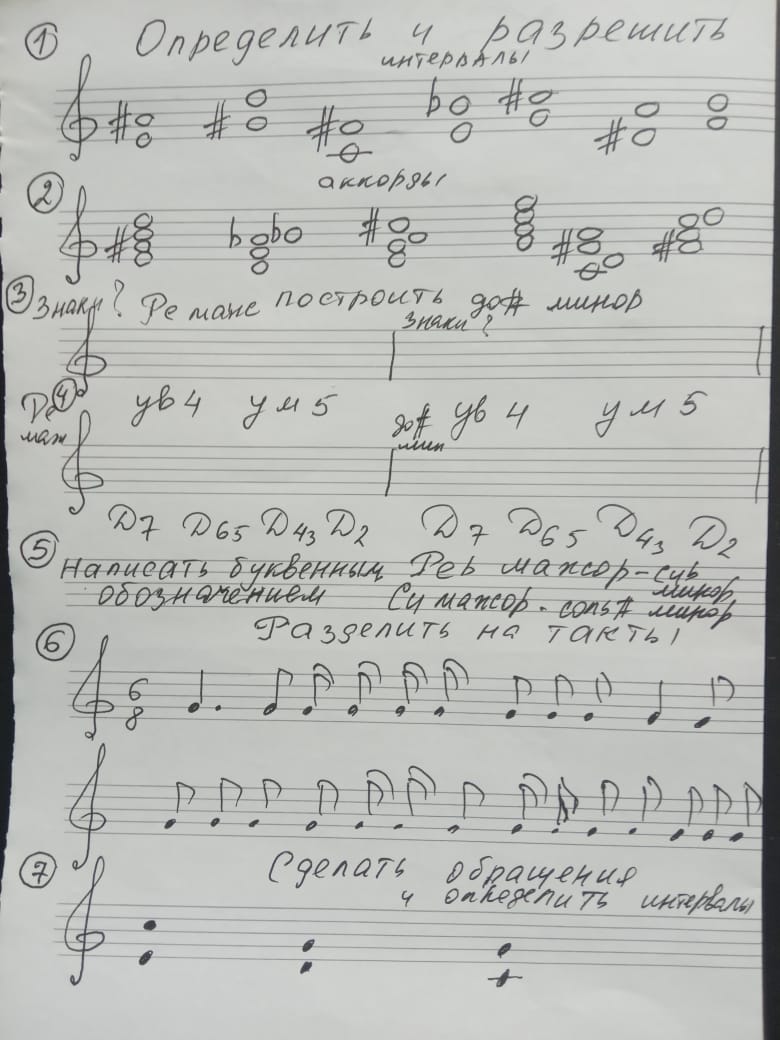 1 Определить и разрешить
интервалы
2 аккорды
3 Знаки? Ре маж построить до# минор
Знаки?
4 Ре маж ув 4 ум 5 до# мин ув 4 ум 5
Д7 Д65 Д43 Д2 Д7 Д65 Д43 Д2
5 Написать буквенным Реb мажор - сиb минор
обозначением Си мажор - соль# минор
6 Разделить на такты
6
8
7 Сделать обращения
и определить интервалы